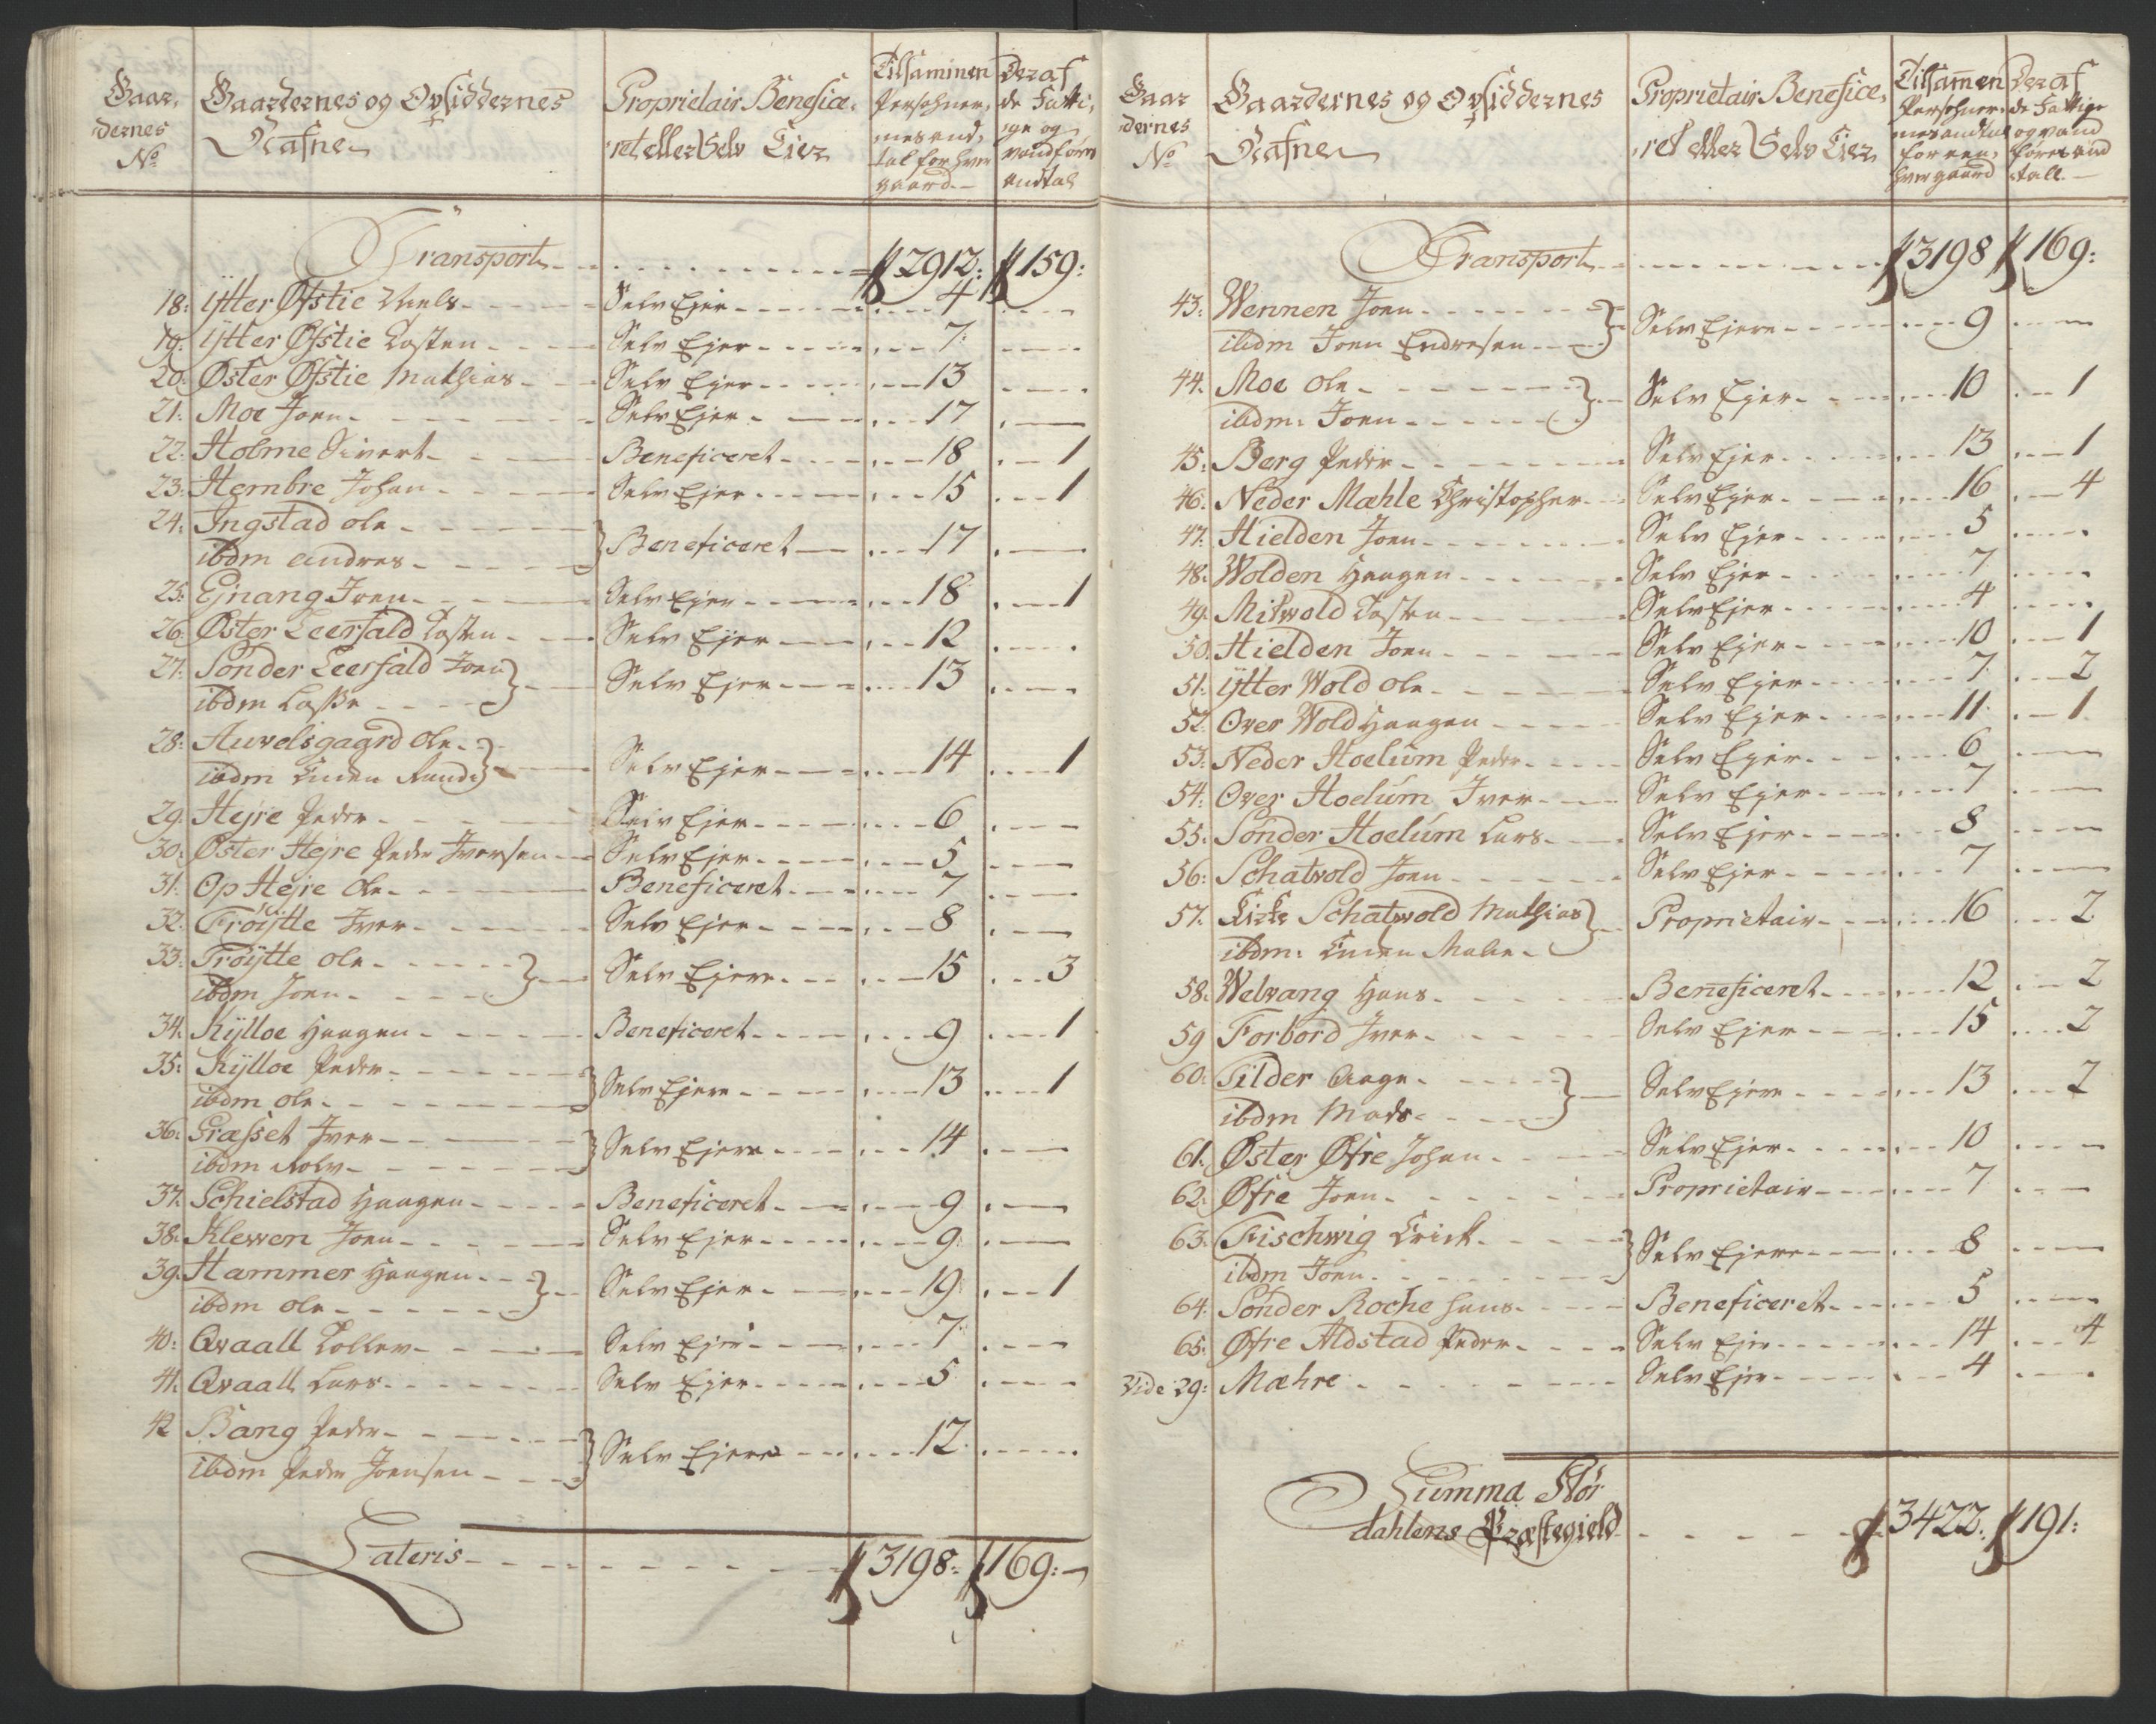 Gaar,
dernes
No
Gaardernes og Opsiddernes
Nafne
Proprietair Benefice,
ret eller Selv Eier
Tilsammen
Persohner,
nes and,
tal for hver
gaard.
Deraf
de Fatti,
ge og
vandføres
andtal
Transport - - - 2912: 159:
18: Ytter Øfstie Niels - - - Selv Ejer - - - 4 - - -
19: Ytter Øfstie Lasten - - - Selv Ejer - - - 7 - - -
20: Øster Øfstie Mathias - - - Selv Ejer - - - 13 - - -
21: Moe Joen - - - Selv Ejer - - - 17 - - -
22: Holme Sivert - - - Beneficeret - - - 18 - - - 1
23: Hembre Johan - - - Selv Ejer - - - 15 - - - 1
24: Ingstad Ole - - -
ibdm Andres - - - } Beneficeret - - - 17 - - -
25: Ejnang Joen - - - Selv Ejer - - - 18 - - - 1
26: Øster Leerfald Lasten - - - Selv Ejer - - - 12 - - -
27: Sønder Leerfald Joen
ibdm Lasse - - - } Selv Ejer - - - 13 - - -
28: Auvelsgaard Ole -
ibdm Enken Rande } Selv Ejer - - - 14 - - - 1
29: Hejre Peder - - - Selv Ejer - - - 6 - - -
30: Øster Hejre Peder Iversen - - - Selv Ejer - - - 5 - - -
31: Op Hejre Ole - - - Beneficeret - - - 7 - - -
32: Trøytte Iver - - - Selv Ejer - - - 8 - - -
33: Trøytte Ole - - -
ibdm Joen - - - } Selv Ejere - - - 15 - - - 3
34: Kylloe Haagen - - - Beneficeret - - - 9 - - - 1
35: Kylloe Peder - - -
ibdm Ole - - - } Selv Ejere - - - 13 - - - 1
36: Græsset Iver - - -
ibdm Rolv - - - } Selv Ejere - - - 14 - - -
37: Schielstad Haagen - - - Beneficeret - - - 9 - - -
38: Klewen Joen - - - Selv Ejer - - - 9 - - -
39: Hammer Haagen - - -
ibdm Ole - - - } Selv Ejer - - - 19 - - - 1
40: Qvaall Tollev - - - Selv Ejer - - - 7 - - -
41: Qvaall Lars - - - Selv Ejer - - - 5 - - -
42 Bang Peder - - -
ibdm Peder Joensen - - - } Selv Ejere - - - 12 - - -
Lateris - - - 3198: 169:
Gaar
dernes
No
Gaardernes og Opsiddernes
Nafne
Proprietair Benefice,
ret eller Selv Eier
Tilsamen
Persohner,
nes andtal
for een,
hver gaard
Deraf
de Fattige
og vand
føres and
tall.
Transport - - - 3198 169:
43: Wennen Joen - - -
ibdm Joen Endresen - - - } Selv Ejere - - - 9 - - -
44: Moe Ole - - -
ibdm: Joen - - - } Selv Ejer - - - 10 - - - 1
45: Berg Peder - - - Selv Ejer - - - 13 - - - 1
46: Neder Mæhle Christopher - - - Selv Ejer - - - 16 - - - 4
47: Hielden Joen - - - Selv Ejer - - - 5 - - -
48: Wolden Haagen - - - Selv Ejer - - - 7 - - -
49: Mitwold Lasten - - - Selv Ejer - - - 4 - - -
50: Hielden Joen - - - Selv Ejer - - - 10 - - - 1
51: Ytter Wold Ole - - - Selv Ejer - - - 7 - - - 2
52: Over Wold Haagen - - - Selv Ejer - - - 11 - - - 1
53: Neder Hoelum Peder - - - Selv Ejer - - - 6 - - -
54: Over Hoelum Iver - - - Selv Ejer - - - 7 - - -
55: Sønder Hoelum Lars - - - Selv Ejer - - - 8 - - -
56: Schatvold Joen - - - Selv Ejer - - - 7 - - -
57: Kirke Schatwold Mathias
ibdm: Enken Malin - } Proprietair - - - 16 - - - 2
58: Welvang Hans - - - Beneficeret - - - 12 - - - 2
59 Forbord Iver - - - Selv Ejer - - - 15 - - - 2
60: Tilder Aage - - -
ibdm Mads - - - } Selv Ejere - - - 13 - - - 2
61: Øster Øfre Johan - - - Selv Ejer - - - 10 - - -
62: Øfre Joen - - - Proprietair - - - 7 - - -
63: Fischwig Erich - - -
ibdm Joen - - - } Selv Ejere - - - 8 - - -
64: Sønder Roche Hans - - - Beneficeret - - - 5 - - -
65: Øfre Aldstad Peder - - - Selv Ejer - - - 14 - - - 4
Vide 29: Mæhre - - - Selv Ejer - - - 4 - - -
Summa Stør
dahlens Præstegield - - - 3422: 191: